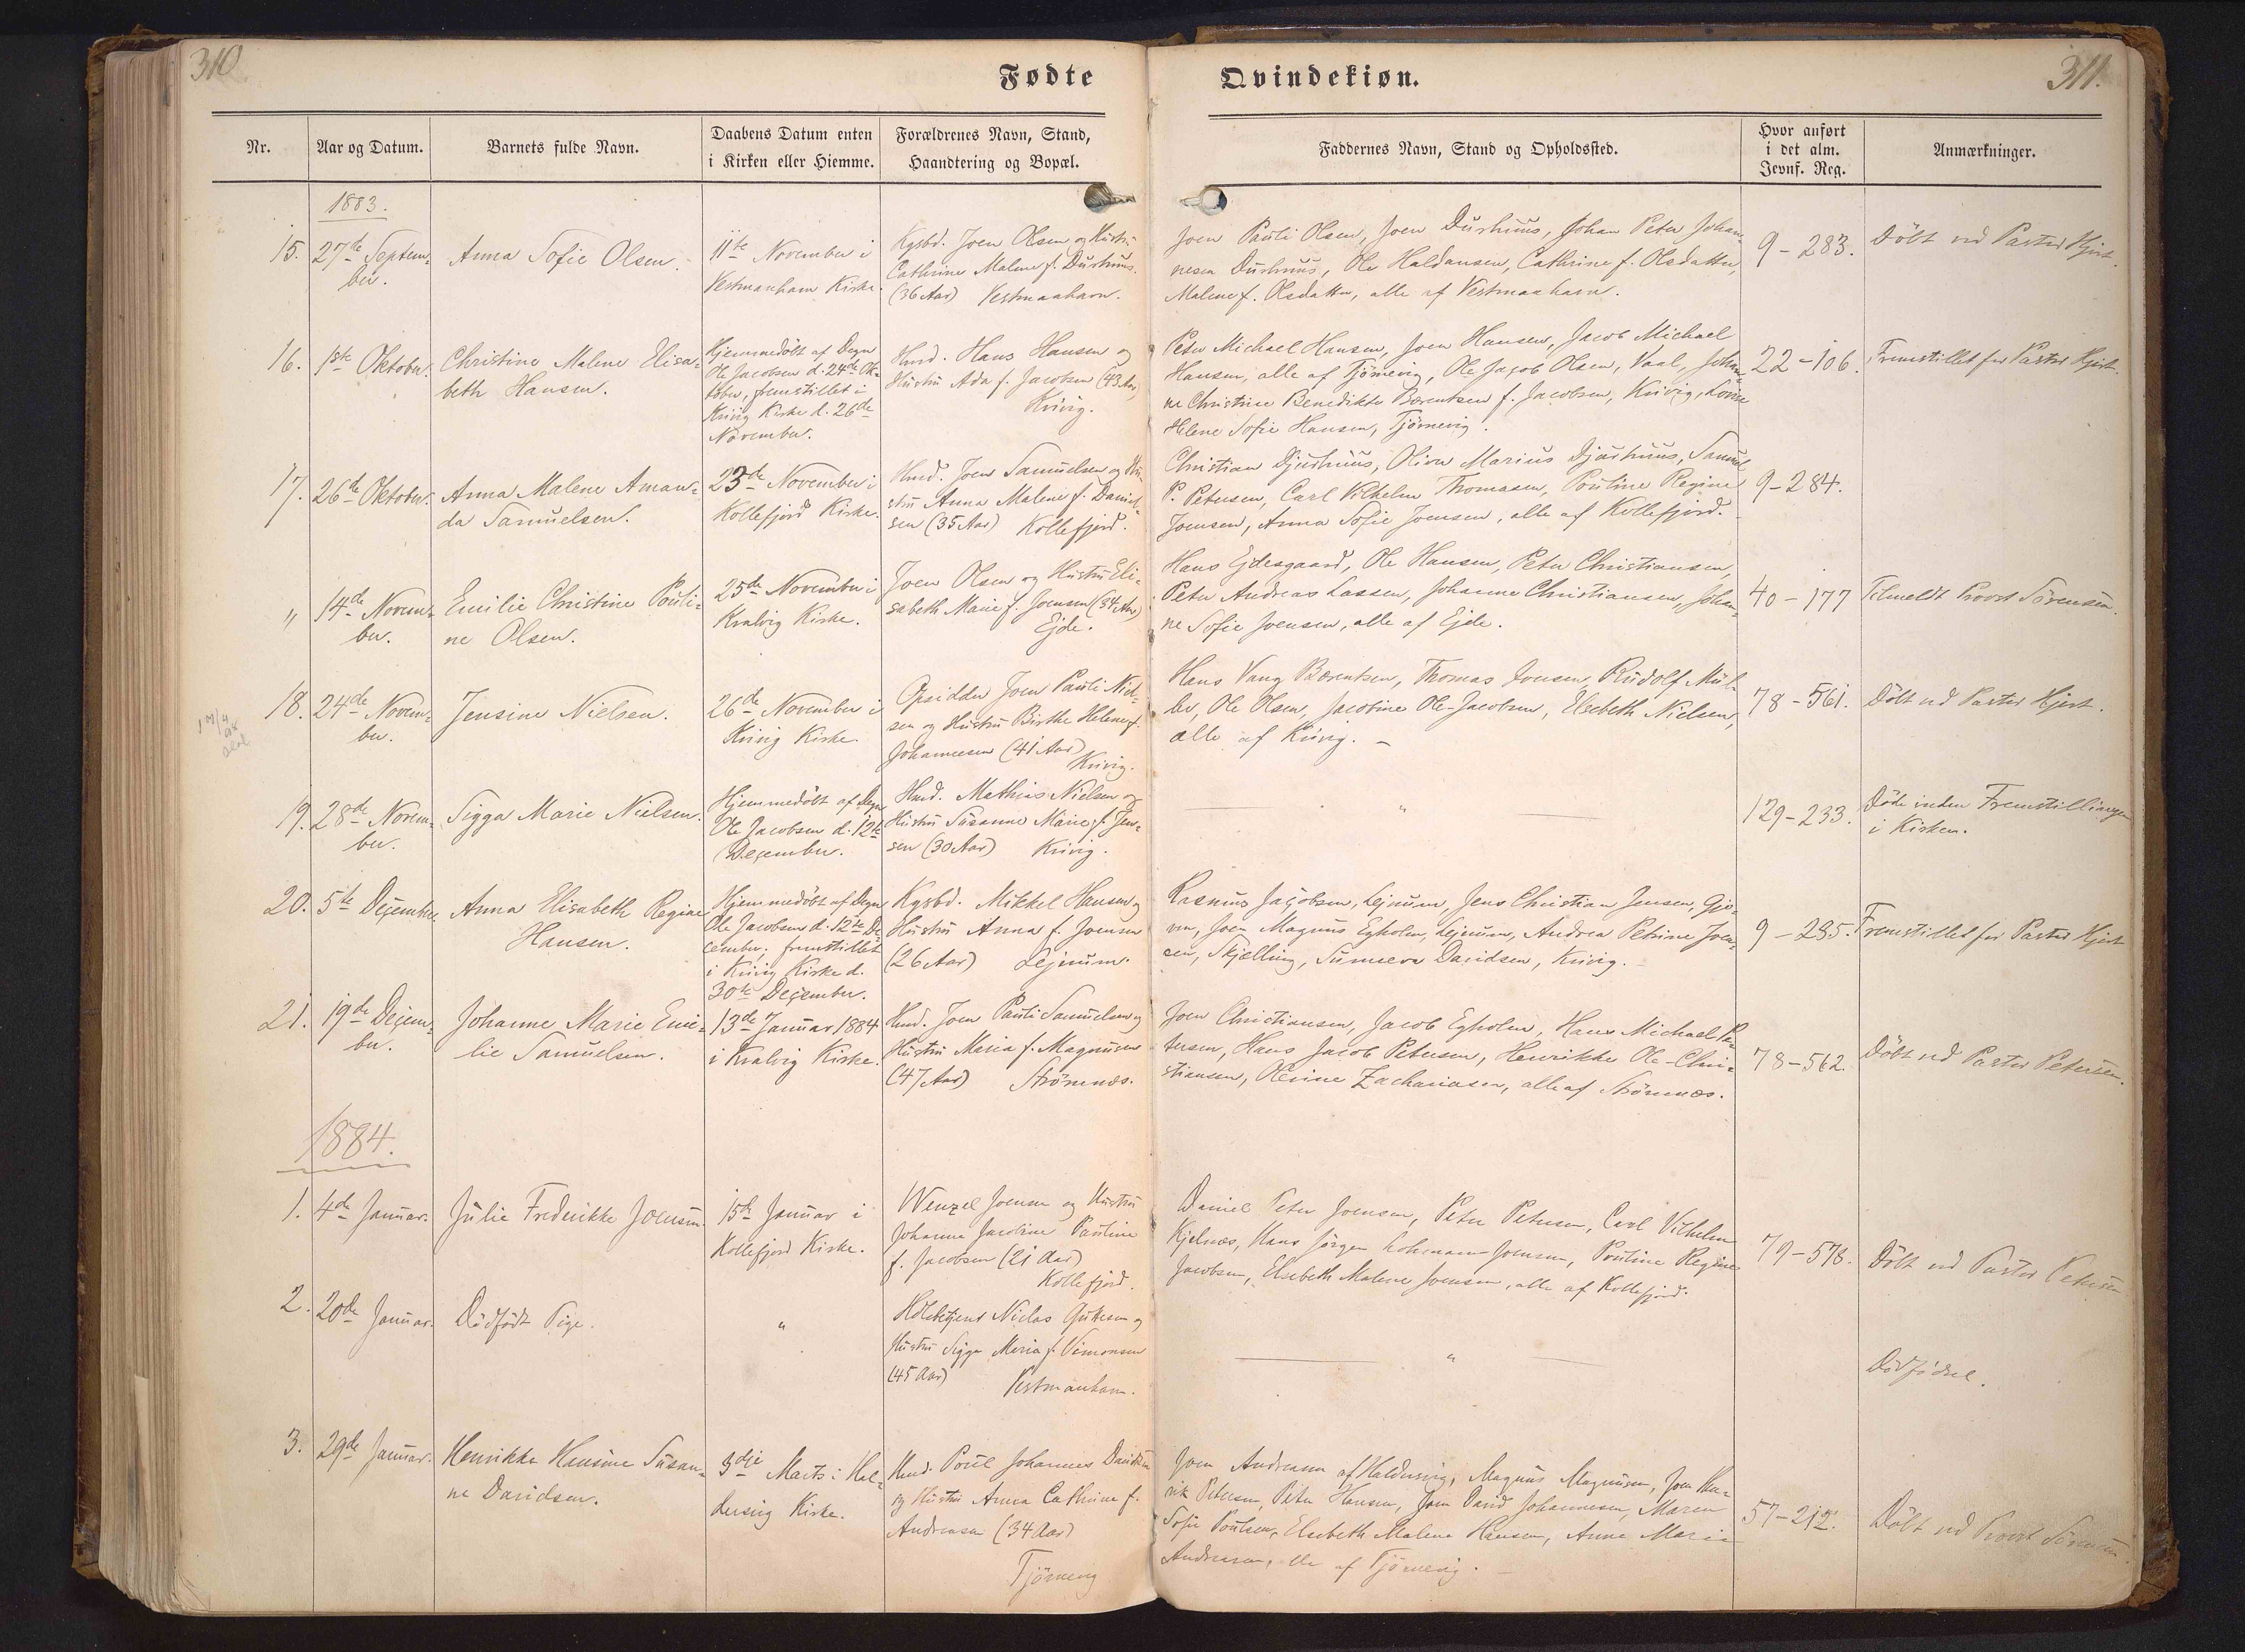 310
Fødte
Qvindekiøn.
311.
Nr.
Aar og Datum.
Barnets fulde Navn.
Daabens Datum enten
i Kirken eller Hiemme.
Forældrenes Navn, Stand,
Haandtering og Bopæl.
Faddernes Navn, Stand og Opholdssted.
Hvor anført
i det alm.
Jevnf. Reg.
Anmærkninger.
1883.
15.
27de Septem-
ber.
Anna Sofie Olsen.
11te November i
Vestmanham Kirke.
Kgsbd. Joen Olsen og Hustru
Cathrine Malene f. Durhuus.
(36 Aar) Vestmanhavn.
Joen Pauli Olsen, Joen Durhuus, Johan Peter Johan-
nesen Durhuus, Ole Haldansen, Cathrine f. Olsdatter,
Malene f. Olsdatter, alle af Vestmanhavn.
9-283.
Döbt ved Pastor Hjort.
16.
1ste Oktober.
Christine Malene Elisa-
beth Hansen.
Hjemmedöbt af Degn
Ole Jacobsen d. 24de Ok-
tober, fremstillet i
Kvivig Kirke d. 26de
November.
Hmd. Hans Hansen og
Hustru Ada f. Jacobsen (43 Aar)
Kvivig.
Peter Michael Hansen, Joen Hansen, Jacob Michael
Hansen, alle af Tjörnevig, Ole Jacob Olsen, Vaal, Johan-
ne Christine Benedikte Bærentsen f. Jacobsen, Kvivig, Lovise
Helene Sofie Hansen, Tjörnevig.
22-106.
Fremstillet for Pastor Hjort.
17.
26de Oktober.
Anna Malene Aman-
da Samuelsen.
23de November i
Kollefjord Kirke.
Hmd. Joen Samuelsen og Hu-
stru Anna Malene f. Daniel-
sen (35 Aar) Kollefjord.
Christian Djurhuus, Oliver Marius Djurhuus, Samuel
P. Petersen, Carl Vilhelm Thomasen, Pouline Regine
Joensen, Anna Sofie Joensen, alle af Kollefjord.
9-284.
"
14de Novem-
ber.
Emilie Christine Pouli-
ne Olsen.
25de November i
Kvalvig Kirke.
Joen Olsen og Hustru Eli-
sabeth Marie f. Joensen (34 Aar)
Ejde.
Hans Ejdesgaard, Ole Hansen, Peter Christiansen,
Peter Andreas Lassen, Johanne Christiansen, Johan-
ne Sofie Joensen, alle af Ejde.
40-177
Tilmeldt Provst Sörensen.
18.
24de Novem-
ber.
Jensine Nielsen.
26de November i
Kvivig Kirke.
Opsidder Joen Pauli Niel-
sen og Hustru Birthe Helene f.
Johannesen (41 Aar)
Kvivig.
Hans Vang Bærentsen, Thomas Joensen, Rudolf Mül-
ler, Ole Olsen, Jacobine Ole-Jacobsen, Elsebeth Nielsen,
alle af Kvivig.
78-561.
Döbt ved Pastor Hjort.
19.
28de Novem-
ber.
Sigga Marie Nielsen.
Hjemmedöbt af Degn
Ole Jacobsen d. 12te
December.
Hmd. Mathias Nielsen og
Hustru Susanne Marie f. Jen-
sen (30 Aar) Kvivig.
"
129-233.
Döde inden Fremstillingen
i Kirken.
20.
5te December.
Anna Elisabeth Regine
Hansen.
Hjemmedöbt af Degn
Ole Jacobsen d. 12te De-
cember, fremstillet
i Kvivig Kirke d.
30te December.
Kgsbd. Mikkel Hansen og
Hustru Anna f. Joensen
(26 Aar) Lejnum.
Rasmus Jacobsen, Lejnum, Jens Christian Jensen, Gjo-
un, Joen Magnus Egholm, Lejnum, Andrea Petrine Joen-
sen, Skjelling, Sunneva Davidsen, Kvivig.
9-285.
Fremstillet for Pastor Hjort
21.
19de Decem-
ber.
Johanne Marie Emi-
lie Samuelsen.
13de Januar 1884
i Kvalvig Kirke.
Hmd. Joen Pauli Samuelsen og
Hustru Maria f. Magnusen
(47 Aar) Strömnæs.
Joen Christiansen, Jacob Egholm, Hans Michael Pe-
tersen, Hans Jacob Petersen, Henrikke Ole-Chri-
stiansen, Olevine Zachariasen, alle af Strömnæs.
78-562.
Döbt ved Pastor Petersen.
1884.
1.
4de Januar.
Julie Frederikke Joensen.
15de Januar i
Kollefjord Kirke.
Wenzel Joensen og Hustru
Johanna Jacobine Pauline
f. Jacobsen (21 Aar)
Kollefjord.
Daniel Peter Joensen, Peter Petersen, Carl Vilhelm
Kjelnæs, Hans Jörgen Lohmann Joensen, Pouline Regine
Jacobsen, Elsebeth Malene Joensen, alle af Kollefjord.
79-578.
Döbt ved Pastor Petersen
2.
20de Januar.
Dödfödt Pige.
"
Niclas
Hustru Sigga Maria f. Simonsen
(45 Aar) Vestmanhavn.
"
Dödfödsel.
3.
29de Januar.
Henrikke Hansine Susan-
ne Davidsen.
3die Marts i Hal-
dersvig Kirke.
Hmd. Poul Johannes Davidsen
og Hustru Anna Cathrine f.
Andreasen (34 Aar)
Tjörnevig
Joen Andreasen af Haldersvig, Magnus Magnusen, Joen Hen-
rik Petersen, Peter Hansen, Joen David Johannesen, Maren
Sofie Poulsen, Elsebeth Malene Hansen, Anne Marie
Andreasen, alle af Tjörnevig.
57-212.
Döbt ved Provst Sörensen.